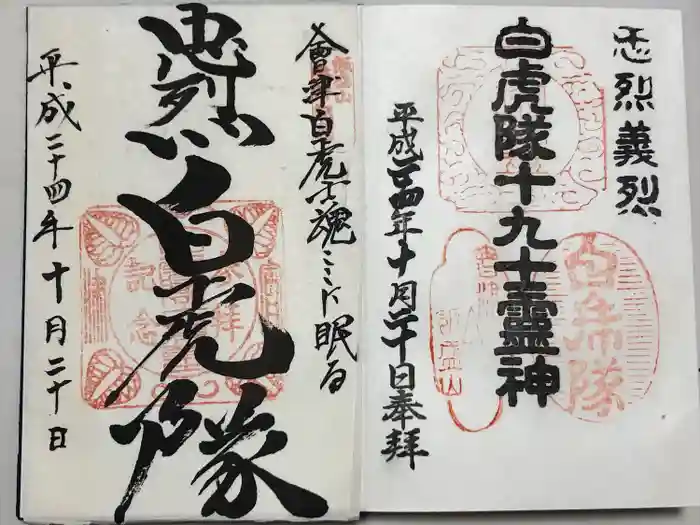 忠烈義烈
白虎隊十九士霊神
平成二十四年十月二十日奉拝
白虎隊
飯盛山
會津白虎士魂ここに眠る
忠烈白虎隊
平成二十四年十月二十日
参拝
記念